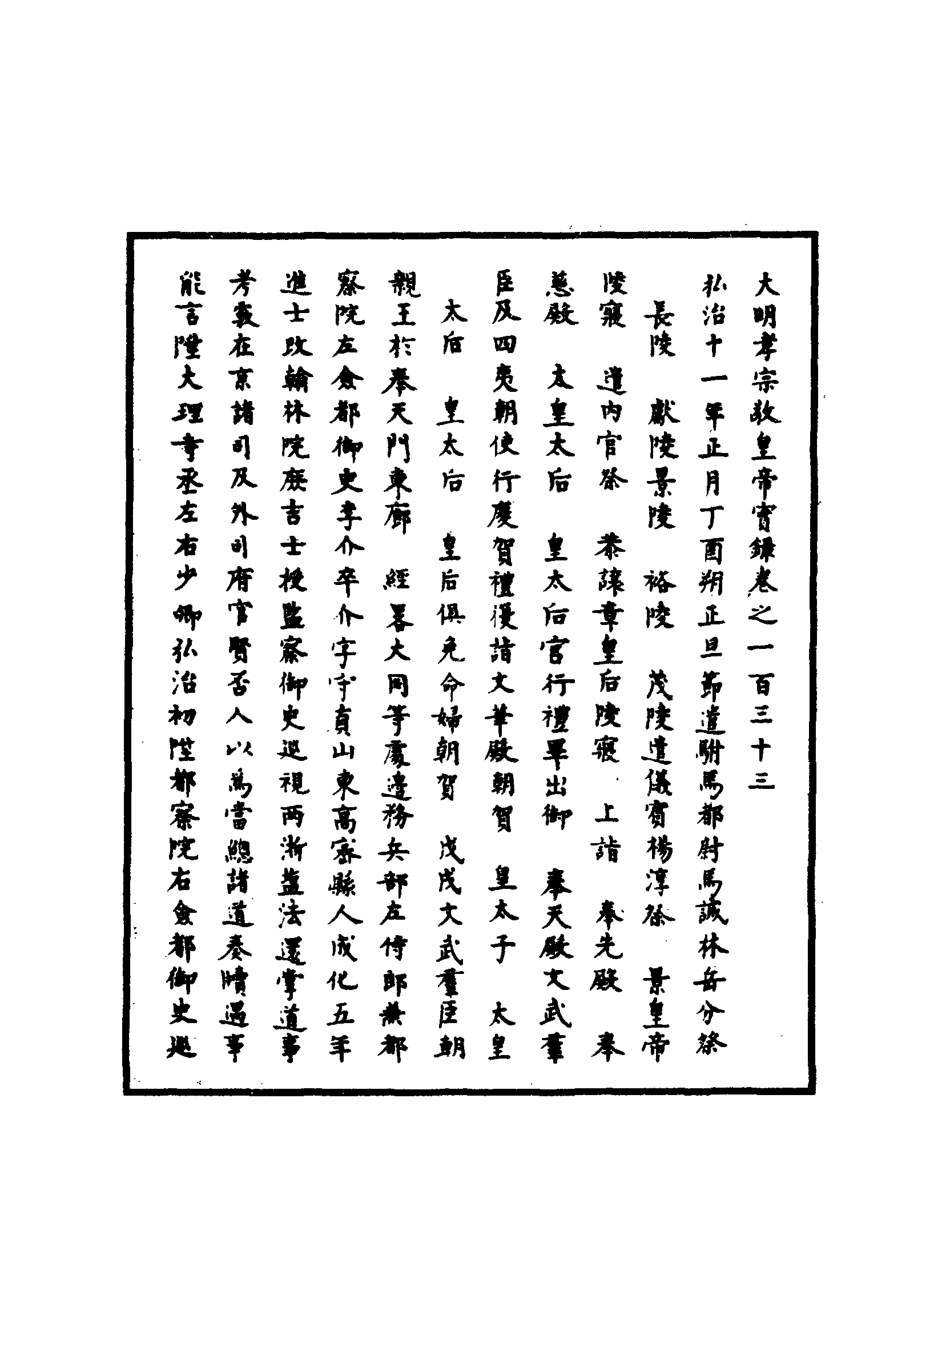 大明孝宗敬皇帝實録卷之一百三十三
弘治十一年正月丁酉朔正旦節遣駙馬都尉馬誠林岳分祭
長陵　獻陵景陵　裕陵　茂陵遣儀賓楊淳祭　景皇帝
陵寢　遣内官祭　恭讓章皇后陵寢　上詣　奉先殿　奉
慈殿　太皇太后　皇太后宮行禮畢出御　奉天殿文武羣
臣及四夷朝使行慶賀禮復詣文華殿朝賀　皇太子　太皇
太后　皇太后　皇后俱免命婦朝賀　戊戌文武羣臣朝
親王於奉天門東廊　經畧大同等處邊務兵部左侍郎兼都
察院左僉都御史李介卒介字守貞山東高密縣人成化五年
進士改翰林院庶吉士授監察御史巡視兩浙鹽法還掌道事
考覈在京諸司及外司府官賢否人以為當總諸道奏牘遇事
能言陞大理寺丞左右少卿弘治初陞都察院右僉都御史巡